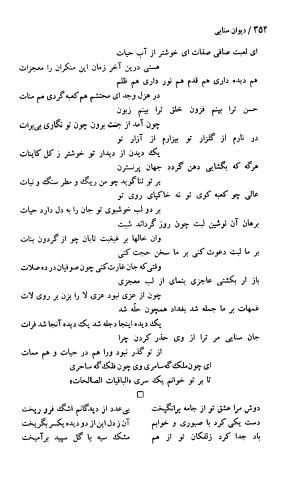 ۳۵۲ / دیوان سنایی
ای لعبت صافی صفات ای خوشتر از آب حیات
هستی درین آخر زمان این منکران را معجزات
هم دیده داری هم قدم هم نور داری هم ظلم
در هزل وجد ای محتشم هم کعبه گردی هم منات
حسن ترا بینم فزون خلق ترا بینم زبون
چون آمد از جنت برون چون تو نگاری بی‌برات
در نارم از گلزار تو بیزارم از آزار تو
یک دیدن از دیدار تو خوشتر ز کل کاینات
هرگه که بگشایی دهن گردد جهان پرنسترن
بر تو ثنا گوید چو من ریگ و مطر سنگ و نبات
عالی چو کعبه کوی تو نه خاکپای روی تو
بر دو لب خوشبوی تو جان را به دل دارد حیات
برهان آن نوشین لبت چون روز گرداند شبت
وان خالها بر غبغبت تابان چو از گردون بنات
بر ما لبت دعوت کنی بر ما سخن حجت کنی
وقتی که جان غارت کنی چون صوفیان در ده صلات
باز ار بکشتی عاجزی بنمای از لب معجزی
چون از عزی نبود عزی لا را بزن بر روی لات
غمهات بر ما جمله شد بغداد همچون حله شد
یک دیده اینجا دجله شد یک دیده آنجا شد فرات
جان سنایی مر ترا از وی حذر کردن چرا
از تو گذر نبود ورا هم در حیات و هم ممات
ای چون ملک گه سامری وی چون فلک گه ساحری
تا بر تو خوانم یک سری «الباقیات الصالحات»
دوش مرا عشق تو از جامه برانگیخت بی‌عدد از دیدگانم اشگ فرو ریخت
دست یکی کرد با صبوری و خوابم آن ز دل این از دو دیده یکسر بگریخت
باد جدا کرد زلفکان تو از هم مشک سیه با گل سپید برآمیخت